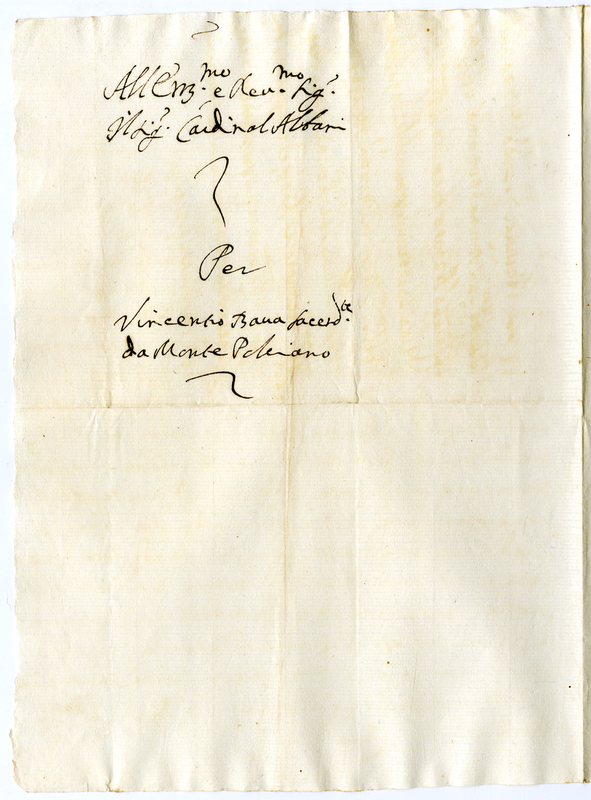 All'Em.mo e Reu.mo Sig.r
Il Sig.r Cardinal Albani
Per
Vincentio Baua Sacerd.te
da Monte Pulciano